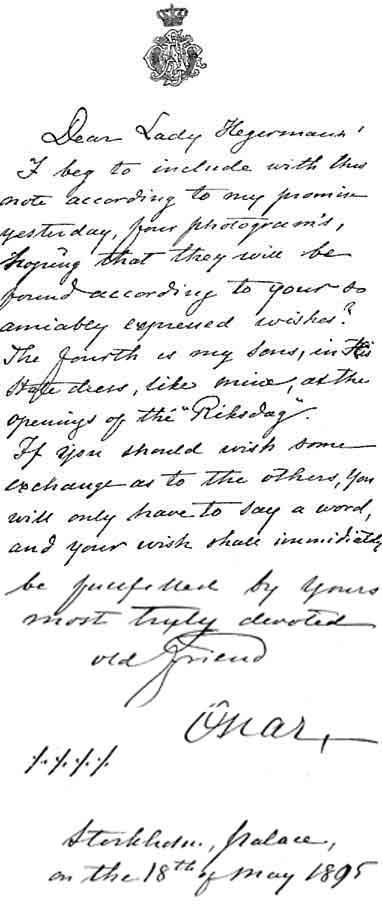 Dear Lady Hegermann!
I beg to include with this
note according to my promise
yesterday, four photogram's,
hoping that they will be
found according to your so
amiably expressed wishes?
The fourth is my sons, in His
State dress, like mine, at the
openings of the "Riksdag".
If you should wish some
exchange as to the others, you
will only have to say a word,
and your wish shall immediatly
be fulfilled by yours
most truly devoted
old friend
Oscar,
Stockholm, palace,
on the 18th of May 1895